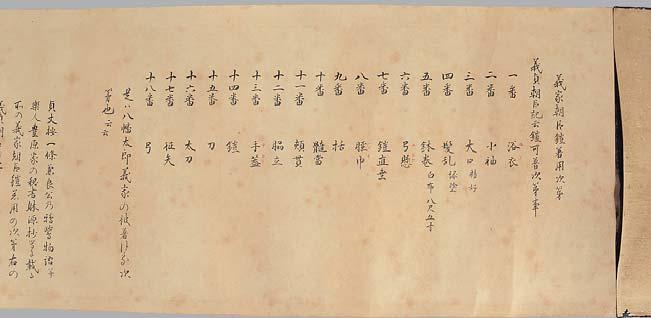 義家朝臣鎧着用次第
義貞朝臣記云鎧可着次第事
一番 浴衣
二番 小袖
三番 大口
四番 髪乱
五番 鉢巻 白布八尺五寸
六番 弓懸
七番 鎧直垂
八番 脛巾
九番 括
十番 髄當
十一番 頬貫
十二番 脇立
十三番 手蓋
十四番 鎧
十五番 刀
十六番 太刀
十七番 征矢
十八番 弓
是八幡太郎義家の被着次
第也云云
貞丈按一條兼良公乃鴉鷺物語
樂人豊原家の秘書體源抄等載る
所の義家朝臣鎧着用の次第右の
義貞朝臣